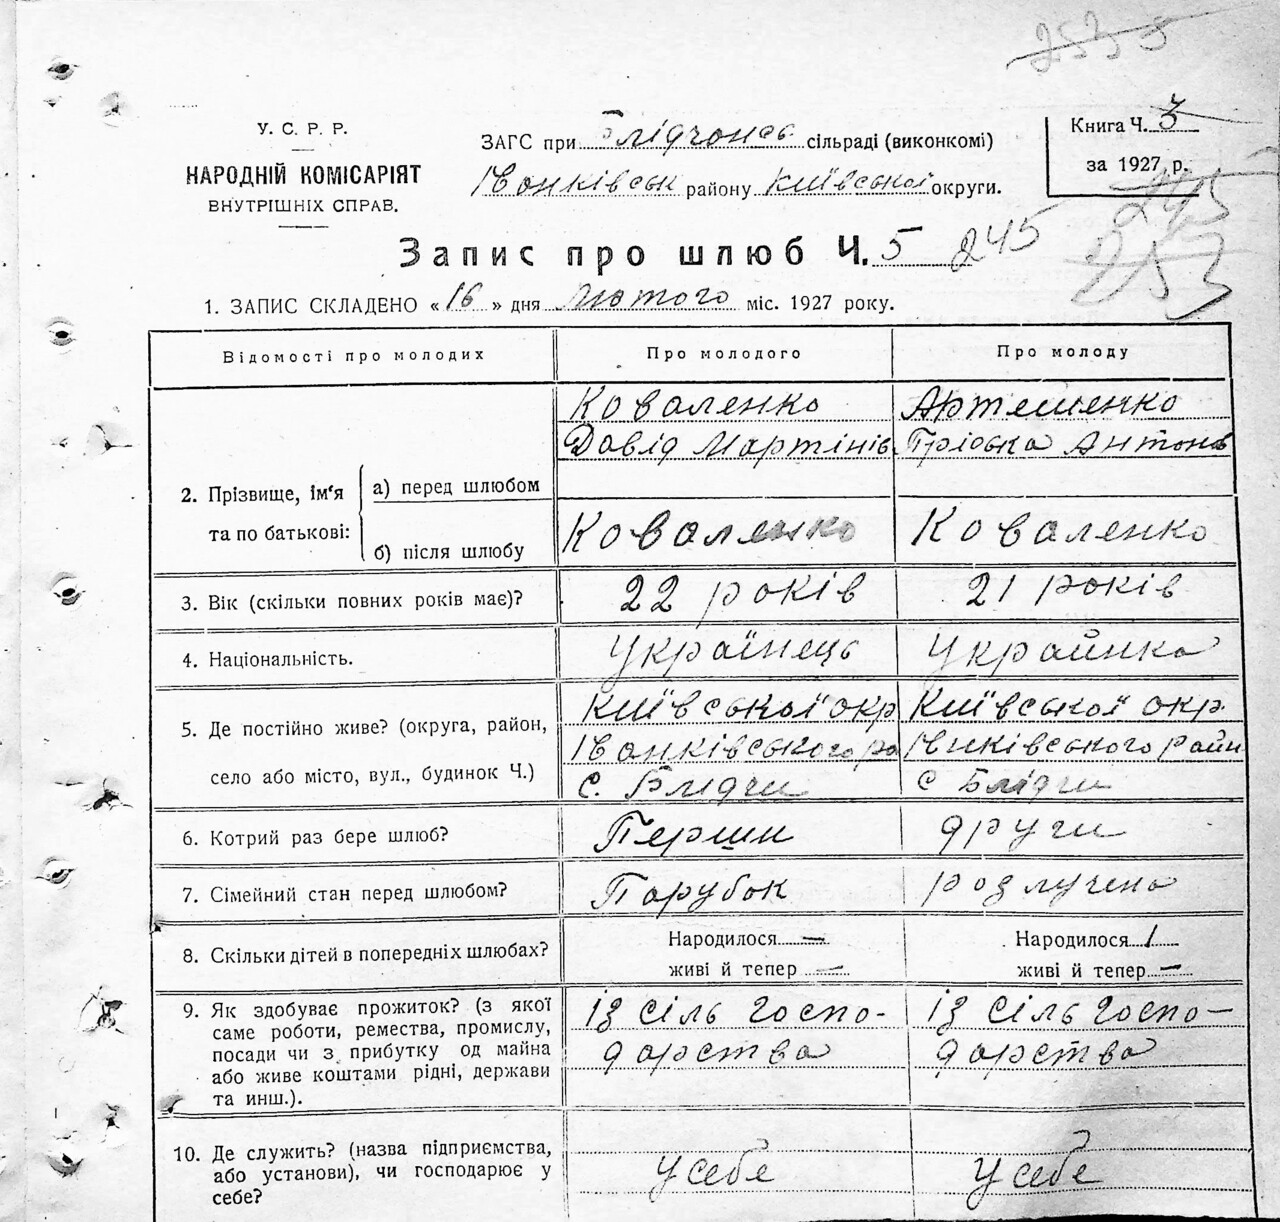 2535
У. С. Р. Р.
НАРОДНІЙ КОМІСАРІЯТ
ВНУТРІШНІХ СПРАВ.
ЗАГС при Блідчансь сільраді (виконкомі)
Іванківськ району Київської округи.
Книга Ч. 3
за 1927 р.
245
253
Запис про шлюб Ч. 5 245
1. ЗАПИС СКЛАДЕНО « 16 » дня Лютого міс. 1927 року.
Відомості про молодих
Про молодого
Про молоду
2. Прізвище, ім'я та по батькові:
а) перед шлюбом
Коваленко
Давід Мартінів
Артеменко
Пріська Антонів
б) після шлюбу
Коваленко
Коваленко
3. Вік (скільки повних років має)?
22 років
21 років
4. Національність.
Українець
Украйнка
5. Де постійно живе? (округа, район,
село або місто, вул., будинок Ч.)
Київської окр
Іванківського ра
с. Блідчи
Київської окр.
Інківського райн
с Блідчи
6. Котрий раз бере шлюб?
Перши
други
7. Сімейний стан перед шлюбом?
Парубок
розлучена
8. Скільки дітей в попередніх шлюбах?
Народилося —
живі й тепер —
Народилося 1
живі й тепер —
9. Як здобуває прожиток? (з якої
саме роботи, ремества, промислу,
посади чи з прибутку од майна
або живе коштами рідні, держави
та инш.).
Із сіль госпо-
дарства
Із сіль госпо-
дарства
10. Де служить? (назва підприємства,
або установи), чи господарює у
себе?
у себе
у себе